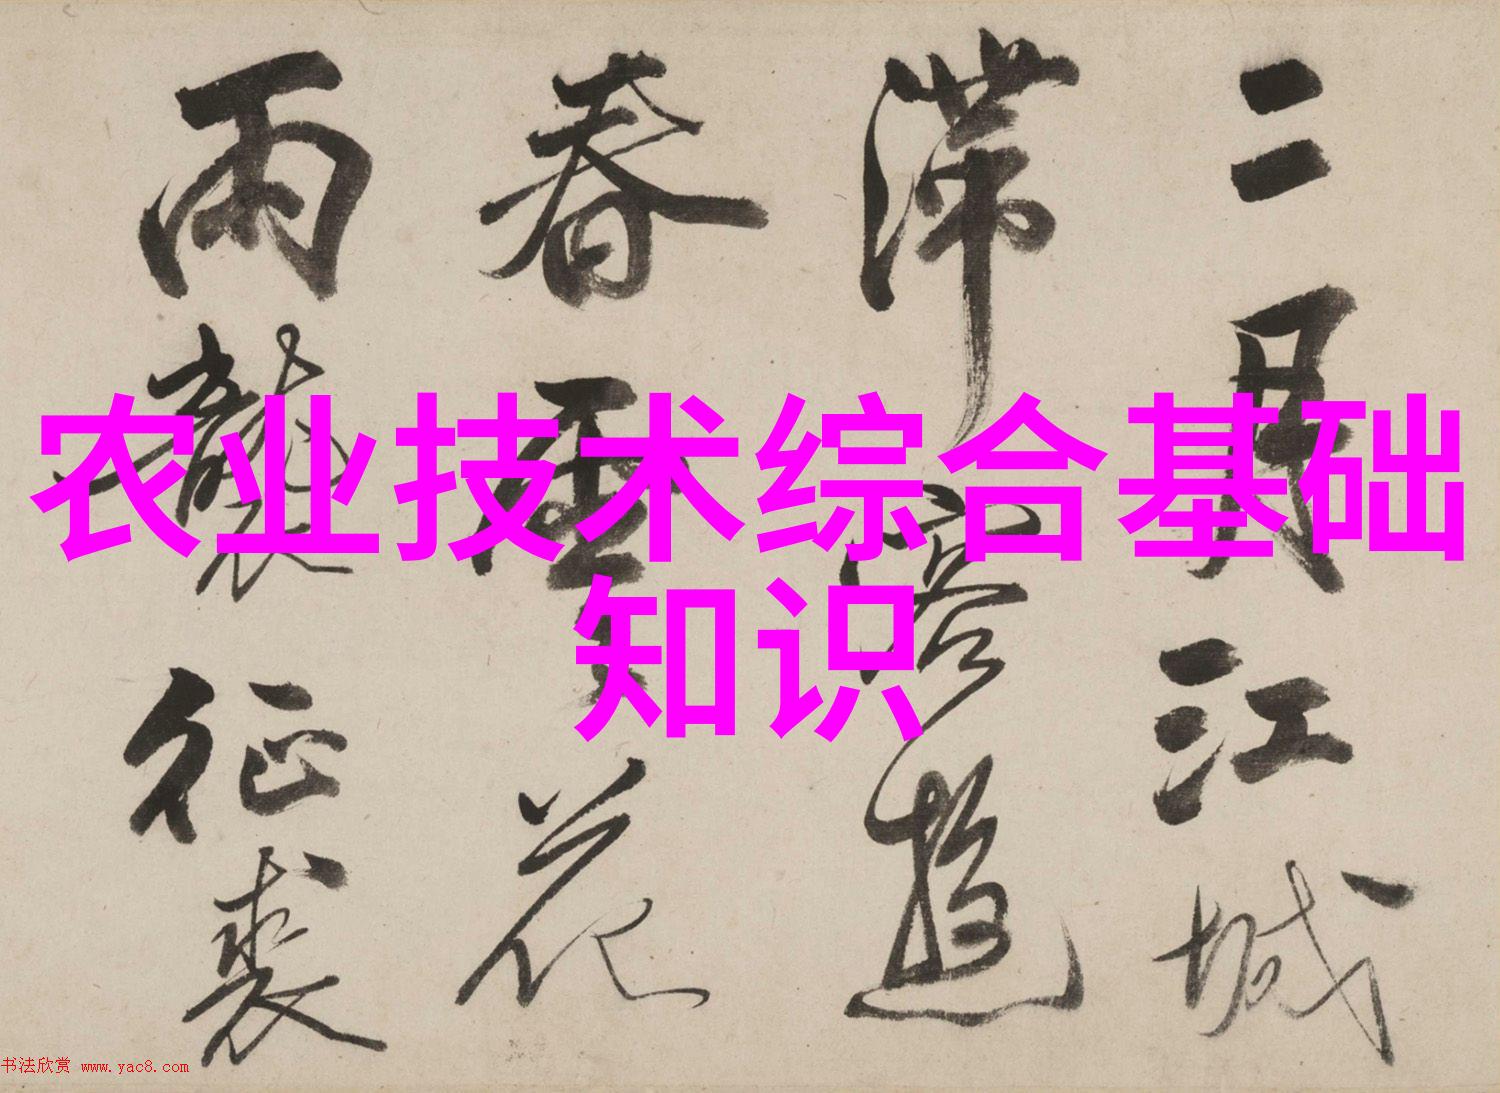 农业技术综合基础
知识
二月江城
滞客遊
春花
雨襲征裘
书法欣赏 www.yac8.com